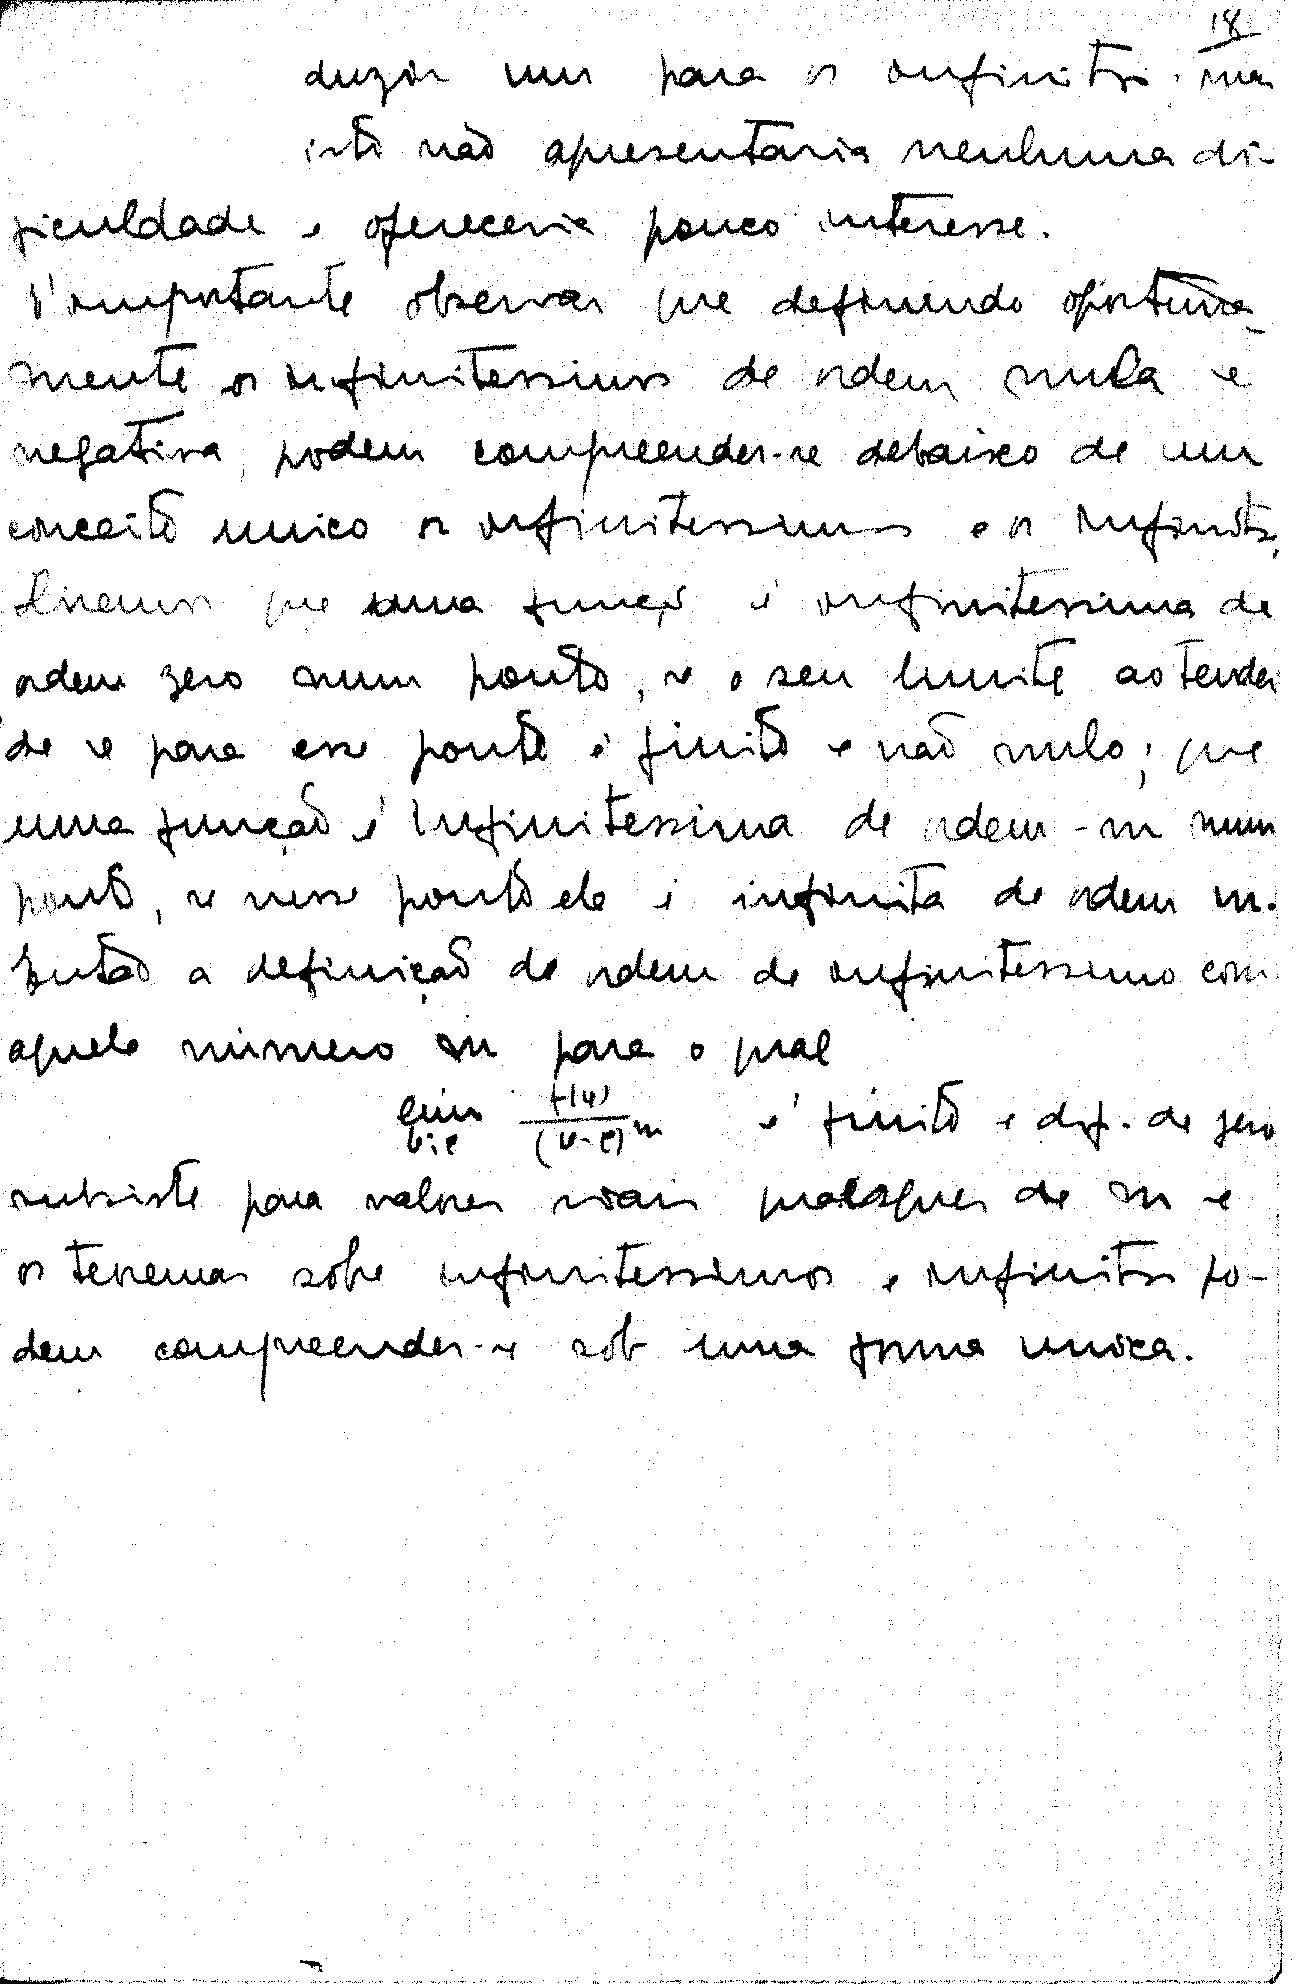 18
duzir um para os infinitos. mas
isto não apresentaria nenhuma di-
ficuldade e ofereceria pouco interesse.
É importante observar que definindo oportuna-
mente os infinitessimos de ordem nula e
negativa, podem compreender-se debaixo de um
conceito unico os infinitessimos e os infinitos.
Diremos que uma função é infinitessima de
ordem zero num ponto, se o seu limite ao tender
de v para esse ponto é finito e não nulo; que
uma função é infinitessima de ordem -m num
ponto, se nesse ponto ela é infinita de ordem m.
Então a definição de ordem de infinitessimo com
aquele número m para o qual
lim v=c f(v)/(v-c)^m é finito e dif. de zero
subsiste para valores reais quaisquer de m e
os teoremas sobre infinitessimos e infinitos po-
dem compreender-se sob uma forma unica.